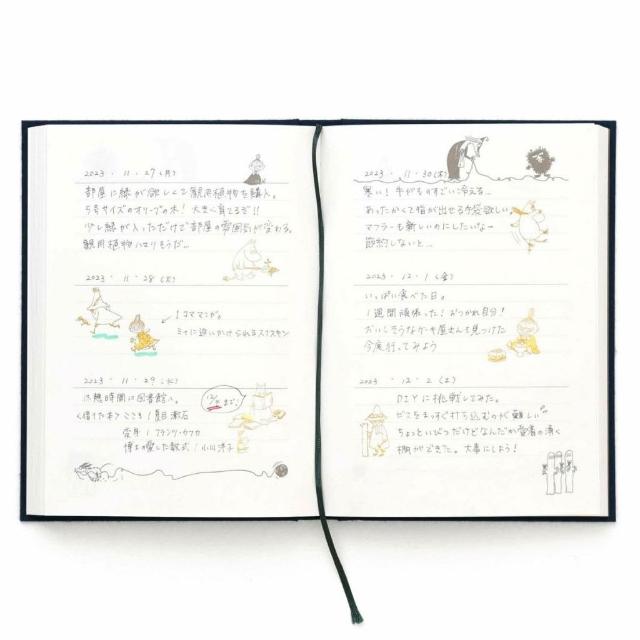 2023 . 11 . 27 (月)
部屋に緑が欲しくて観用植物を購入。
5号サイズのオリーブの木! 大きく育てるぞ!!
少し緑が入っただけで部屋の雰囲気が変わる。
観用植物ハマりそうだ…
2023 . 11 . 28 (火)
1コママンガ。
ミイに追いかけられるスナフキン
2023 . 11 . 29 (水)
休憩時間に図書館へ。
<借りた本> こころ / 夏目漱石
変身 / フランツ・カフカ
博士の愛した数式 / 小川洋子
まで
2023 . 11 . 30 (木)
寒い! 手がものすごい冷える…
あったかくて指が出せる手袋欲しい
マフラーも新しいのにしたいなー
節約しないと…
2023 . 12 . 1 (金)
いっぱい食べた日。
1週間頑張った! おつかれ自分!
おいしそうなケーキ屋さんも見つけた
今度行ってみよう
2023 . 12 . 2 (土)
DIYに挑戦してみた。
ビスをまっすぐ打ち込むのが難しい
ちょっといびつだけどなんだか愛着の湧く
棚ができた。大事にしよう!